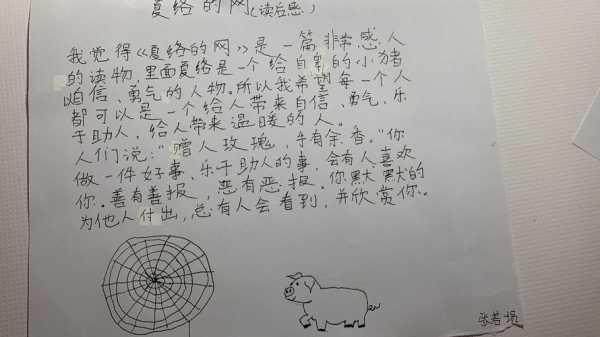 夏络的网(读后感)
我觉得《夏络的网》是一篇非常感人
的读物，里面夏络是一个给自卑的小猪
自信、勇气的人物。所以我希望每一个人
都可以是一个给人带来自信、勇气、乐
于助人，给人带来温暖的人。
人们说：“赠人玫瑰，手有余香。”你
做一件好事、乐于助人的事，会有人喜欢
你。善有善报，恶有恶报。你默默的
为他人付出，总有人会看到，并欣赏你。
张若